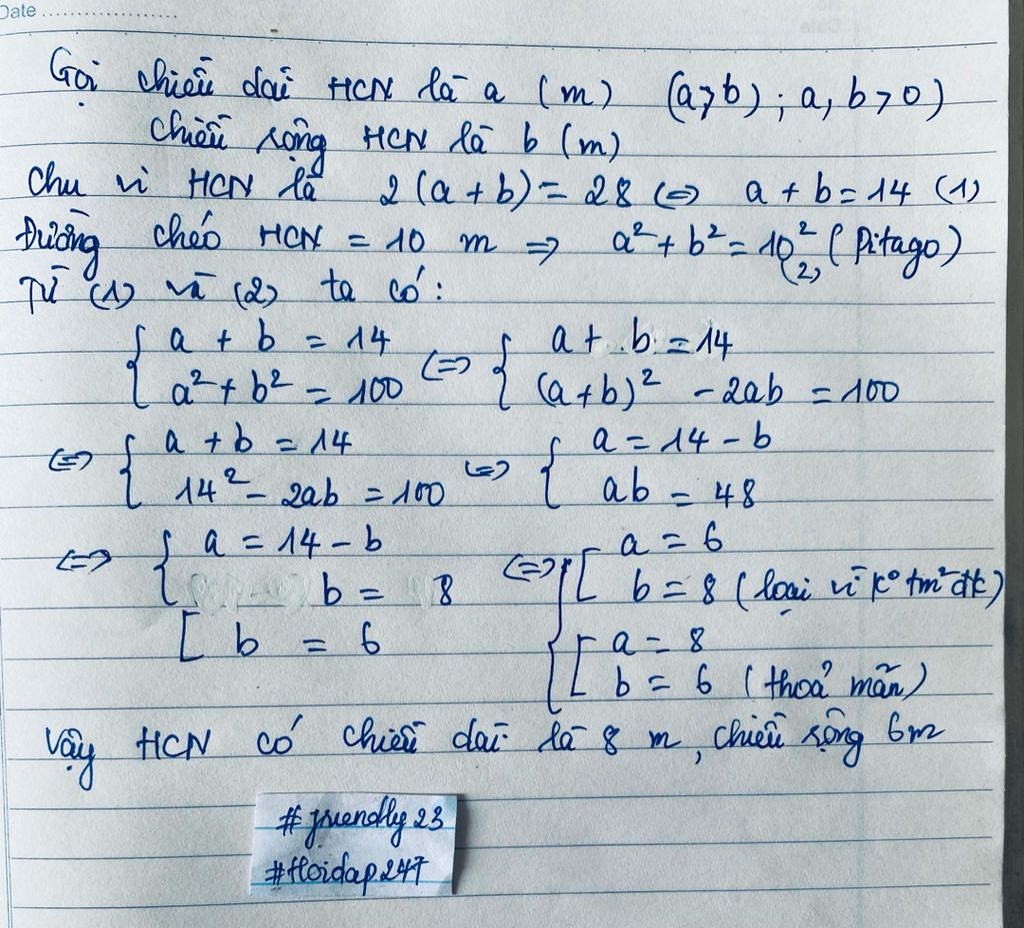 Date
Gọi chiều dài HCN là a (m) (a>b); a, b>0)
chiều rộng HCN là b (m)
Chu vi HCN là 2(a+b)=28 (=) a+b=14 (1)
Đường chéo HCN = 10 m => a²+b²=10² (Pitago)
(2)
Từ (1) và (2) ta có:
{ a + b = 14 (=) { a + b = 14
a² + b² = 100 (a+b)² - 2ab = 100
(=) { a + b = 14 (=) { a = 14 - b
14² - 2ab = 100 ab = 48
(=) { a = 14 - b (=) { [ a = 6
b = 8 b = 8 (loại vì k° tm² đk)
[ b = 6 [ a = 8
b = 6 (thoả mãn)
Vậy HCN có chiều dài là 8 m, chiều rộng 6m
#friendly23
#Hoidap247